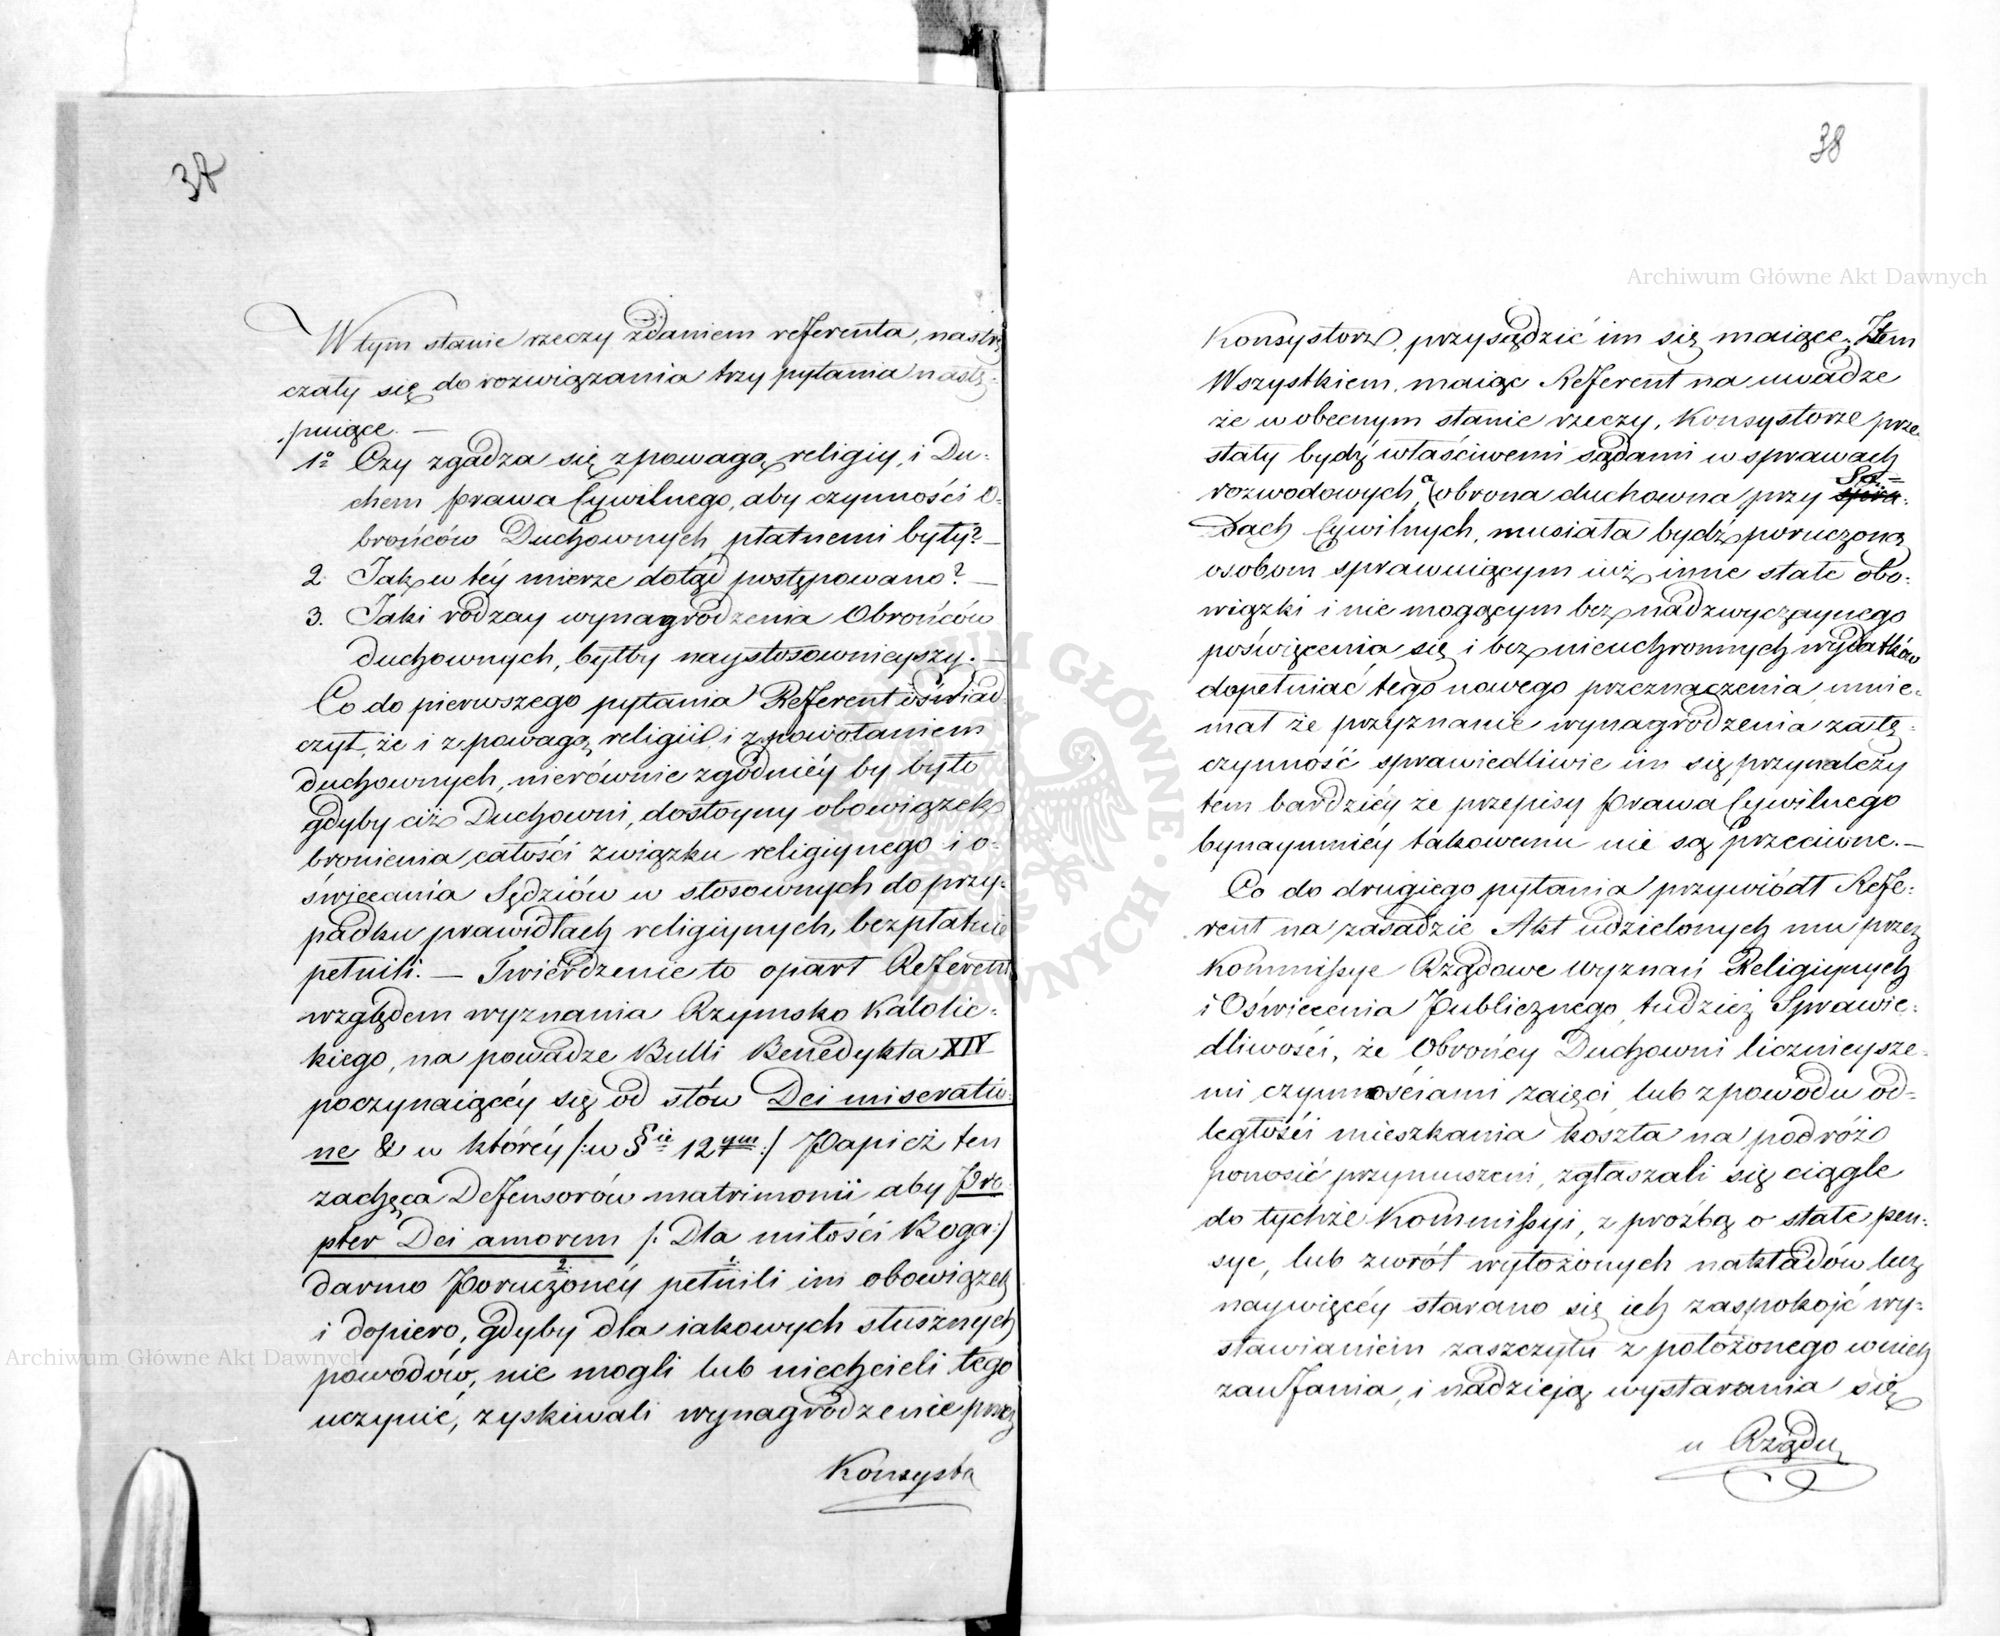 37
W tym stanie rzeczy zdaniem referenta, nastrę
czały się do rozwiązania trzy pytania nastę-
puiące. —
1o Czy zgadza się z powagą religiy, i Du-
chem prawa Cywilnego, aby czynności O-
brońców Duchownych płatnemi były? —
2. Jak w téy mierze dotąd postępowano? —
3. Jaki rodzay wynagrodzenia Obrońców
duchownych, byłby naystosownieyszy. —
Co do pierwszego pytania Referent oświad
czył, że i z powagą religii i z powołaniem
duchownych, nierównie zgodniéy by było
gdyby ciż Duchowni, dostoyny obowiązek
bronienia całości związku religiynego i o-
świecania Sędziów w stosownych do przy-
padku prawidłach religiynych, bezpłatnie
pełnili. — Twierdzenie to oparł Referent
względem wyznania Rzymsko Katolic-
kiego, na powadze Bulli Benedykta XIV
poczynaiącéy się od słów Dei miseratio-
ne & w któréy /: w § ie 12 ym :/ Papież ten
zachęca Defensorów matrimonii aby Pro
pter Dei amorem /: Dla miłości Boga :/
darmo Poruczonéy pełnili im obowiązek
2. 1.
i dopiero, gdyby dla iakowych słusznych
powodów, nie mogli lub niechcieli tego
uczynić, zyskiwali wynagrodzenie przez
Konsysta
38
Konsystorz, przysądzić im się maiące. Z tem
Wszystkiem, maiąc Referent na uwadze
że w obecnym stanie rzeczy, Konsystorze prze
stały bydź właściwemi sądami w sprawach
rozwodowych, a obrona duchowna przy Są-
dach Cywilnych, musiała bydź poruczoną
osobom sprawuiącym iuż inne stałe obo-
wiązki i nie mogącym bez nadzwyczaynego
poświęcenia się i bez nieuchronnych wydatków
dopełniać tego nowego przeznaczenia, mnie-
mał że przyznanie wynagrodzenia za tę-
czynność sprawiedliwie im się przynależy
tem bardziéy że przepisy prawa Cywilnego
bynaymniéy takowemu nie są przeciwne. —
Co do drugiego pytania przywiódł Refe-
rent na zasadzie Akt udzielonych mu przez
Kommissye Rządowe Wyznań Religiynych
i Oświecenia Publicznego, tudzież Sprawie-
dliwości, że Obrońcy Duchowni licznieysze-
mi czynnościami zaięci, lub z powodu od-
ległości mieszkania koszta na podróże
ponosić przymuszeni, zgłaszali się ciągle
do tychże Kommissyi, z prośbą o stałe pen-
sye, lub zwrót wyłożonych nakładów lecz
naywięcéy starano się ich zaspokoić wy-
stawianiem zaszczytu z położonego w nich
zaufania, i nadzieią wystarania się
u Rządu
Archiwum Główne Akt Dawnych
Archiwum Główne Akt Dawnych